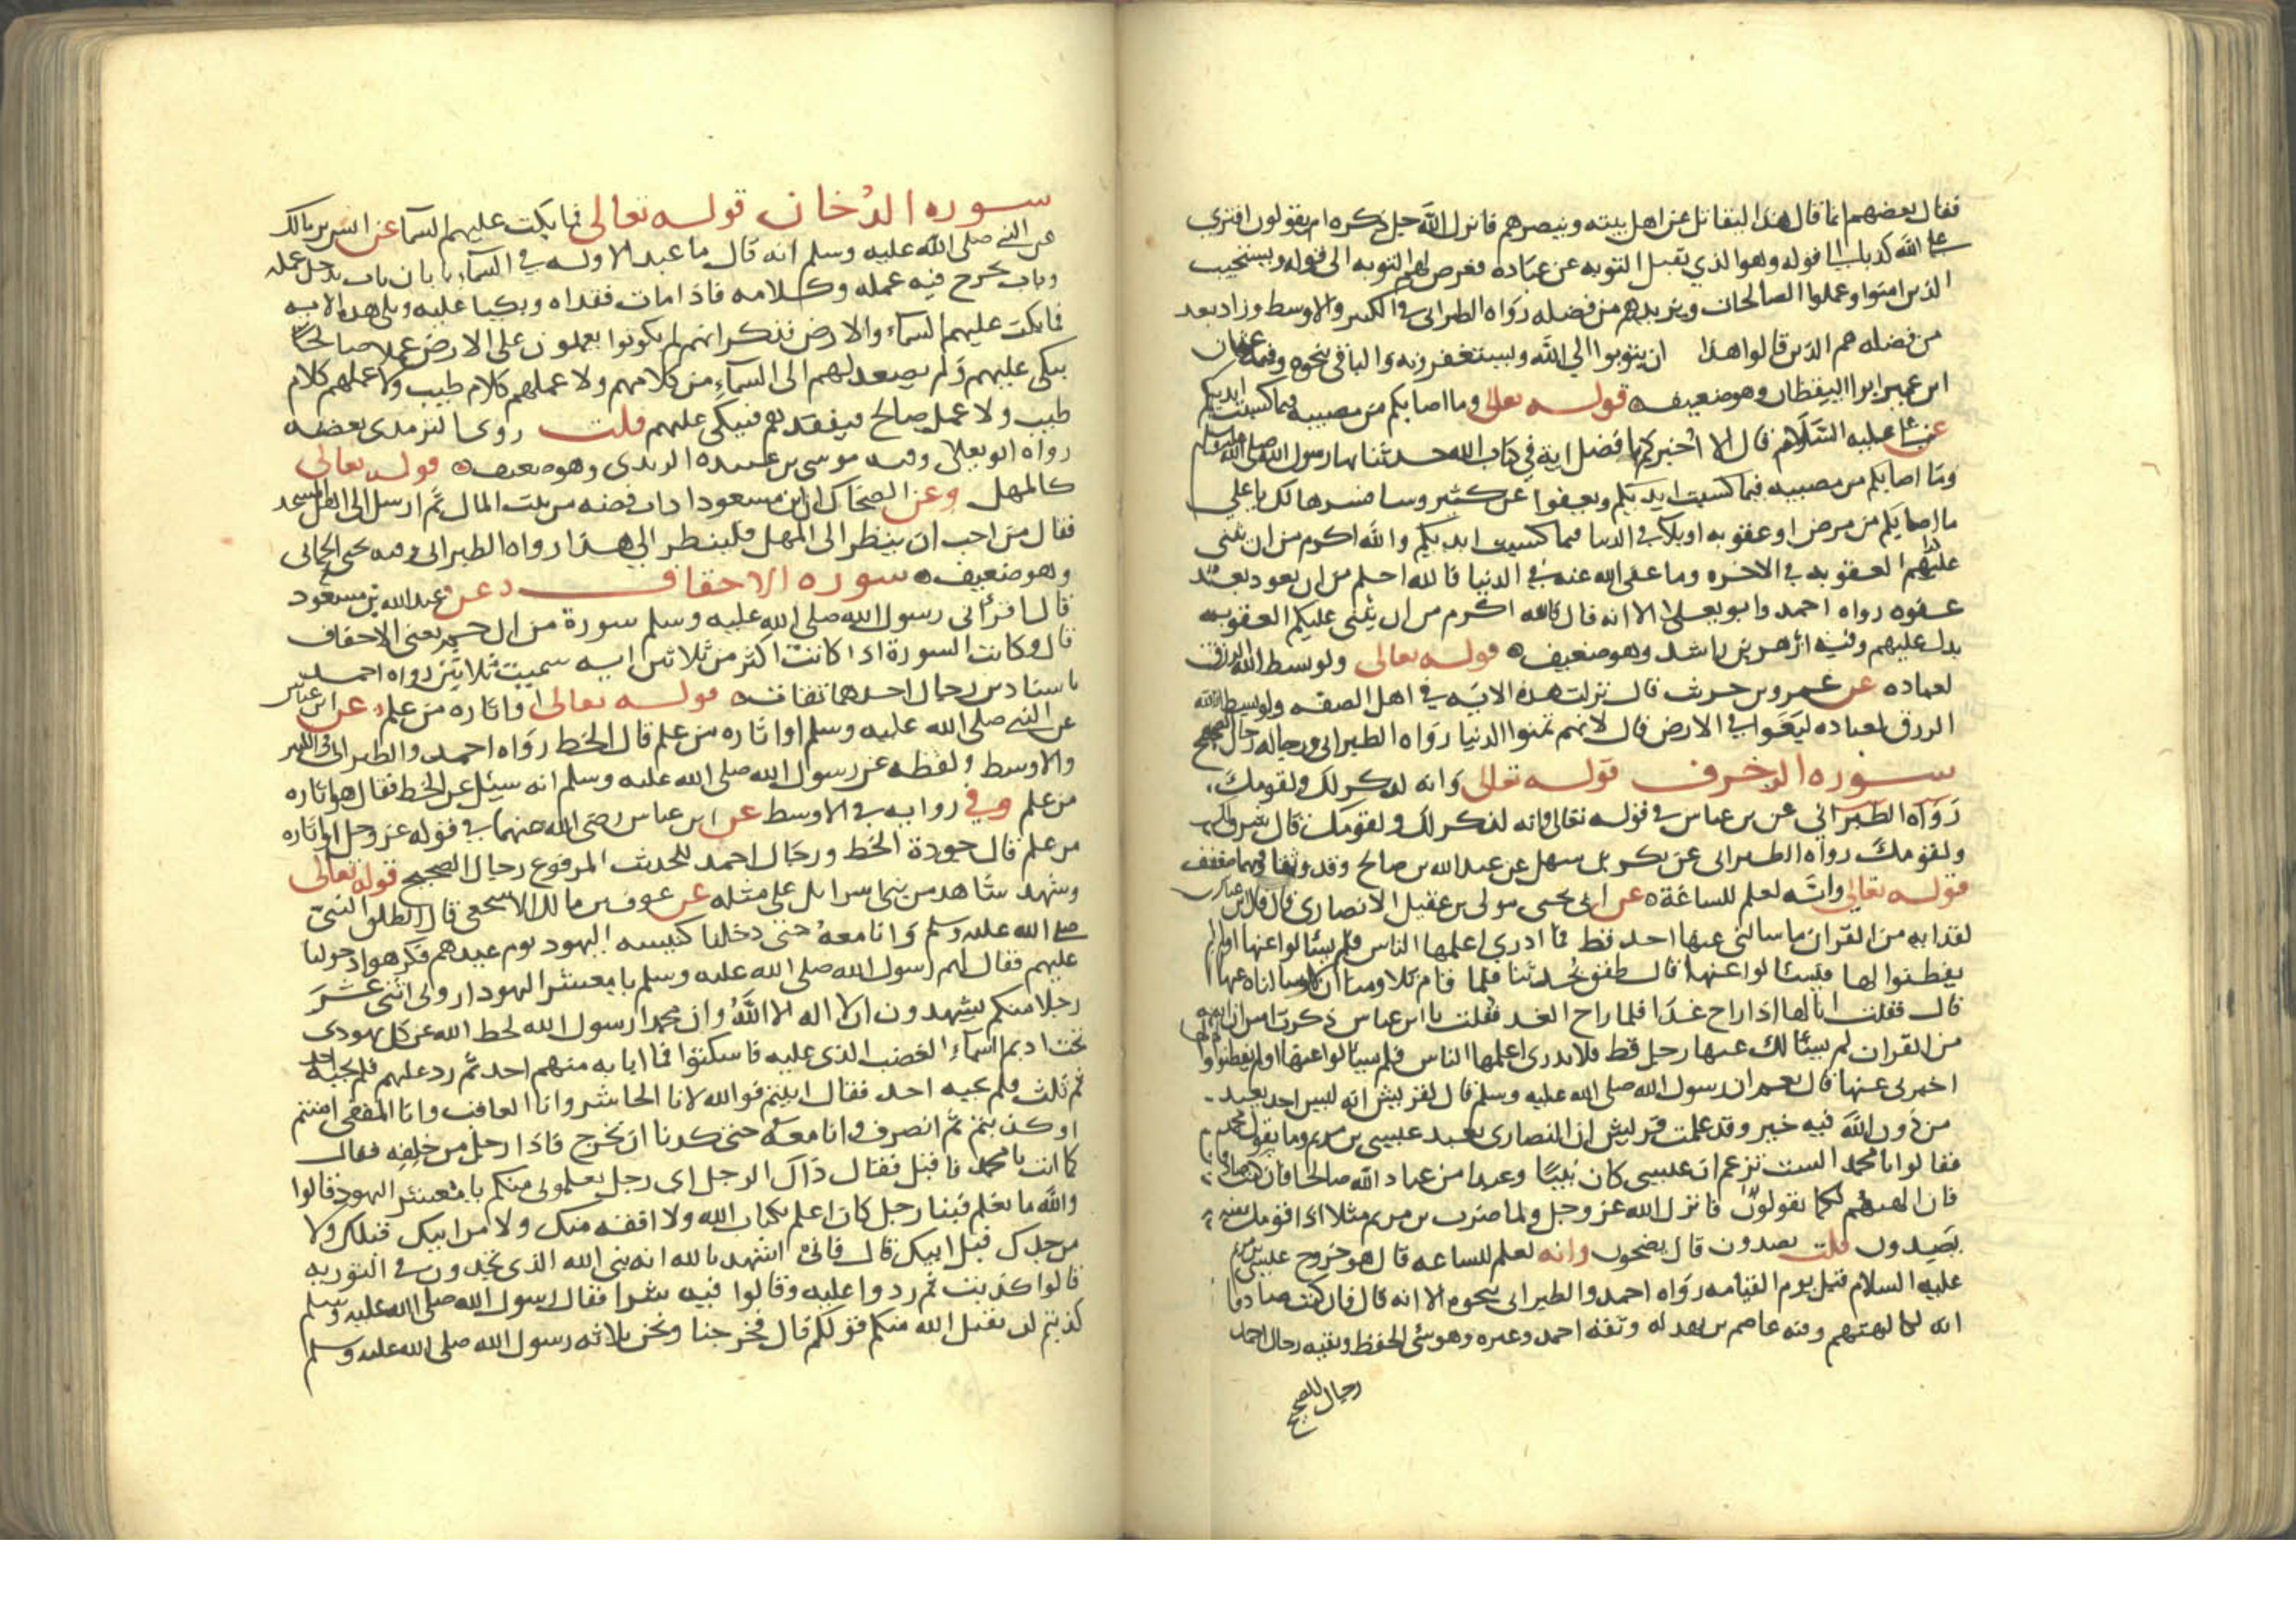 فقال بعضهم انما قال هذا ليقاتل عن اهل بيته وينصرهم فانزل الله جل ذكره ام يقولون افترى
على الله كذبا الى قوله وهو الذي يقبل التوبه عن عباده فعرض لهم التوبه الى قوله ويستجيب
الذين امنوا وعملوا الصالحات ويزيدهم من فضله رواه الطبراني في الكبير والاوسط وزاد بعد
من فضله هم الذين قالوا هذا ان يتوبوا الى الله ويستغفرونه والباقي نحوه وفيه عثمان
ابن عمير ابو اليقظان وهو ضعيف قوله تعالى وما اصابكم من مصيبه فبما كسبت ايديكم
عن علي عليه السلام قال الا اخبركم بافضل اية في كتاب الله حدثنا بها رسول الله صلى الله عليه وسلم
وما اصابكم من مصيبه فبما كسبت ايديكم ويعفوا عن كثير وسافسرها لك يا علي
ما اصابكم من مرض او عقوبه او بلاء في الدنيا فبما كسبت ايديكم والله اكرم من ان يثني
عليهم العقوبه في الاخره وما عفى الله عنه في الدنيا فالله احلم من ان يعود بعد
عفوه رواه احمد وابو يعلى الا انه قال فالله اكرم من ان يثني عليكم العقوبه
بدل عليهم وفيه ازهر بن راشد وهو ضعيف قوله تعالى ولو بسط الله الرزق
لعباده عن عمرو بن حريث قال نزلت هذه الايه في اهل الصفه ولو بسط الله
الرزق لعباده لبغوا في الارض قال لانهم تمنوا الدنيا رواه الطبراني ورجاله رجال الصحيح
سورة الزخرف قوله تعالى وانه لذكر لك ولقومك
رواه الطبراني عن بن عباس في قوله تعالى وانه لذكر لك ولقومك قال شرف لك
ولقومك رواه الطبراني عن بكر بن سهل عن عبد الله بن صالح وقد وثقا وفيهما ضعف
قوله تعالى وانه لعلم للساعة عن ابي يحيى مولى بن عقيل الانصاري قال قال ابن عباس
لقد ايه من القران ما سالني عنها احد قط فما ادري اعلمها الناس فلم يسئالوا عنها او لم
يفطنوا لها فيسئالوا عنها قال طفق يحدثنا فلما قام تلاومنا ان لا سالناه عنها
قال فقلت انا لها اذا راح غدا فلما راح الغد فقلت يا ابن عباس ذكرت امس ان ايه
من القران لم يسئالك عنها رجل قط فلا ندري اعلمها الناس فلم يسئالوا عنها او لم يفطنوا لها
اخبرني عنها قال نعم ان رسول الله صلى الله عليه وسلم قال لقريش انه ليس احد يعبد
من دون الله فيه خير وقد علمت قريش ان النصارى تعبد عيسى بن مريم وما يقول محمد
فقالوا يا محمد الست تزعم ان عيسى كان نبيا وعبدا من عباد الله صالحا فان كنت صادقا
فان الهتهم لكما تقولون فانزل الله عز وجل ولما ضرب بن مريم مثلا اذا قومك منه
يصدون قلت يصدون قال يضجون وانه لعلم للساعه قال هو خروج عيسى بن مريم
عليه السلام قبل يوم القيامه رواه احمد والطبراني بنحوه الا انه قال فان كنت صادقا
انه كالهتهم وفيه عاصم بن بهدله وثقه احمد وغيره وهو سئ الحفظ وبقيه رجال احمد
رجال الصحيح
سوره الدخان قوله تعالى فما بكت عليهم السما عن انس بن مالك
عن النبي صلى الله عليه وسلم انه قال ما عبد الا وله في السماء بابان باب يدخل عمله
وباب يخرج فيه عمله وكلامه فاذا مات فقداه وبكيا عليه وتلى هذه الايه
فما بكت عليهم السماء والارض فذكر انهم لم يكونوا يعملون على الارض عملا صالحا
يبكي عليهم ولم يصعد لهم الى السماء من كلامهم ولا عملهم كلام طيب ولا عملهم كلام
طيب ولا عمل صالح فيفقدهم فيبكي عليهم قلت روى الترمذي بعضه
رواه ابو يعلى وفيه موسى بن عبيده الربذي وهو ضعيف قوله تعالى
كالمهل وعن الضحاك ان ابن مسعود اذاب فضه من بيت المال ثم ارسل الى اهل المسجد
فقال من احب ان ينظر الى المهل فلينظر الى هذا رواه الطبراني وفيه يحيى الحماني
وهو ضعيف سوره الاحقاف عن عبد الله بن مسعود
قال اقرأني رسول الله صلى الله عليه وسلم سورة من ال حم يعني الاحقاف
قال وكانت السورة اذا كانت اكثر من ثلاثين ايه سميت ثلاثين رواه احمد
باسنادين رجال احدهما ثقات قوله تعالى او اثاره من علم عن ابن عباس
عن النبي صلى الله عليه وسلم او اثاره من علم قال الخط رواه احمد والطبراني في الكبير
والاوسط ولفظه عن رسول الله صلى الله عليه وسلم انه سيئل عن الخط فقال هو اثاره
من علم وفي روايه في الاوسط عن ابن عباس رضى الله عنهما في قوله عز وجل او اثاره
من علم قال جودة الخط ورجال احمد للحديث المرفوع رجال الصحيح قوله تعالى
وشهد شاهد من بني اسرائيل على مثله عن عوف بن مالك الاشجعي قال انطلق النبي
صلى الله عليه وسلم وانا معه حتى دخلنا كنيسه اليهود يوم عيدهم فكرهوا دخولنا
عليهم فقال لهم رسول الله صلى الله عليه وسلم يا معشر اليهود اروني اثني عشر
رجلا منكم يشهدون ان لا اله الا الله وان محمدا رسول الله لحط الله عن كل يهودي
تحت اديم السماء الغضب الذي عليه فاسكتوا فما اجابه منهم احد ثم رد عليهم فلم يجبه احد
ثم ثلث فلم يجبه احد فقال ابيتم فوالله لانا الحاشر وانا العاقب وانا المقفى امنتم
او كذبتم ثم انصرف وانا معه حتى كدنا ان نخرج فاذا رجل من خلفه فقال
كما انت يا محمد فاقبل فقال ذاك الرجل اي رجل يعلموني منكم يا معشر اليهود قالوا
والله ما نعلم فينا رجل كان اعلم بكتاب الله ولا افقه منك ولا من ابيك قبلك ولا
من جدك قبل ابيك قال فاني اشهد بالله انه نبي الله الذي تجدون في التوريه
قالوا كذبت ثم ردوا عليه وقالوا فيه شرا فقال رسول الله صلى الله عليه وسلم
كذبتم لن يقبل الله منكم قولكم قال فخرجنا ونحن ثلاثه رسول الله صلى الله عليه وسلم